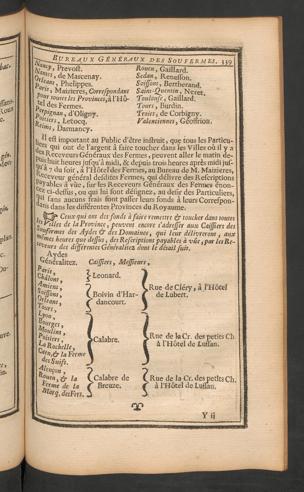 BUREAUX GÉNÉRAUX DES SOUFERMES. 339
Nancy, Prevost.
Nantes, de Marcenay.
Orleans, Phelippes.
Paris, Mazieres, Correspondant
pour toutes les Provinces, à l'Hô-
tel des Fermes.
Perpignan, d'Oligny.
Poitiers, Letocq.
Reims, Darmancy.
Rouen, Gaillard.
Sedan, Renesson.
Soissons, Bertherand.
Saint-Quentin, Neret.
Toulouse, Gaillard.
Tours, Burdin.
Troies, de Corbigny.
Valenciennes, Géoffrion.
Il est important au Public d'être instruit, que tous les Particu-
liers qui ont de l'argent à faire toucher dans les Villes où il y a
des Receveurs Généraux des Fermes, peuvent aller le matin de-
puis huit heures jusqu'à midi, & depuis trois heures après midi jus-
qu'à 7 du soir, à l'Hôtel des Fermes, au Bureau de M. Mazieres,
Receveur général desdites Fermes, qui délivre des Rescriptions
payables à vûe, sur les Receveurs Généraux des Fermes énon-
cez ci-dessus, ou qui lui sont désignez, au desir des Particuliers,
qui sans aucuns frais font passer leurs fonds à leurs Correspon-
dans dans les differentes Provinces du Royaume.
Ceux qui ont des fonds à faire remettre & toucher dans toutes
les Villes de la Province, peuvent encore s'adresser aux Caissiers des
Soufermes des Aydes & des Domaines, qui leur délivreront, aux
mêmes heures que dessus, des Rescriptions payables à vûe, par les Re-
ceveurs des differentes Généralitez dont le détail suit.
Aydes
Généralitez. Caissiers, Messieurs,
Paris,
Châlons,
Amiens,
Soissons,
Orleans,
Tours,
Lyon,
Bourges,
Moulins,
Poitiers,
La Rochelle,
Caen, & la Ferme
des Suifs.
Alençon,
Rouen, & la
Ferme de la
Marq. des Fers.
Leonard.
Boivin d'Har-
dancourt.
Calabre.
Calabre de
Breuze.
Rue de Cléry, à l'Hôtel
de Lubert.
Rue de la Cr. des petits Ch.
à l'Hôtel de Lussan.
Rue de la Cr. des petits Ch.
à l'Hôtel de Lussan.
Y ij